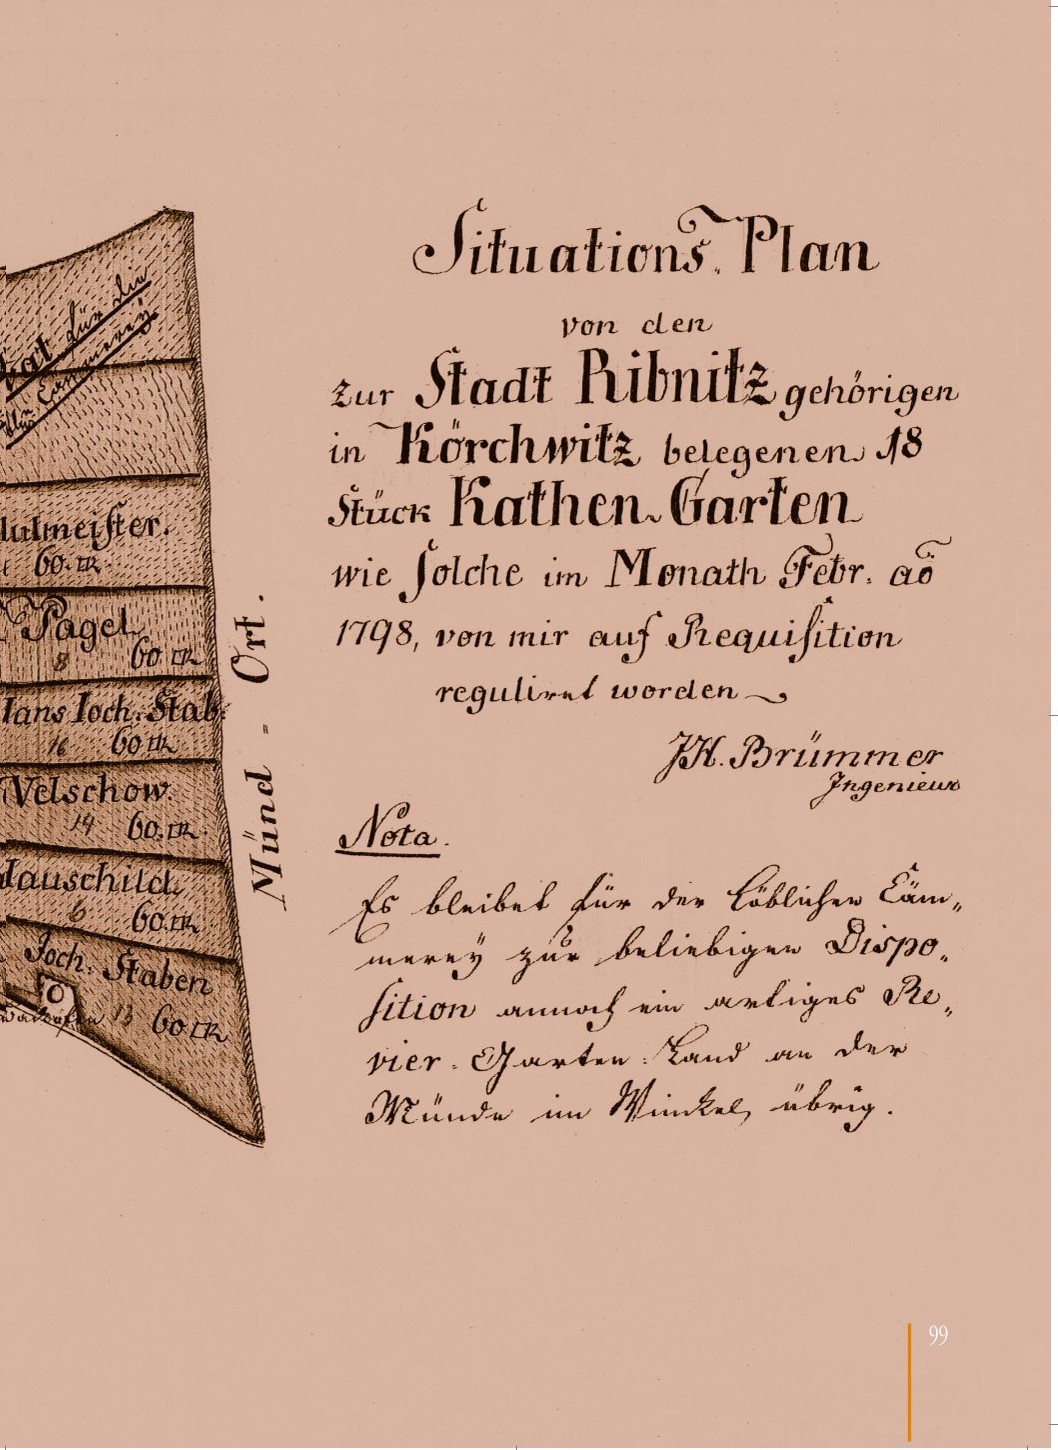 Situations Plan
von den
zur Stadt Ribnitz gehörigen
in Körchwitz belegenen 18
Stück Kathen Garten
wie solche im Monath Febr. aō
1798, von mir auf Requisition
reguliret worden
J.H. Brümmer
Ingenieur
Nota.
Es bleibet für der löblichen Cäm„
merey zur beliebigen Dispo„
sition annoch ein artiges Re„
vier. Garten Land an der
Münde im Winckel übrig.
Münd = Ort.
für die
Cammerey
60.□R.
Pagel
8 60 □R
Hans Joch. Stab
16 60 □R
Velschow.
14 60.□R.
Hauschild.
6 60.□R.
Joch. Staben
13 60 □R
99